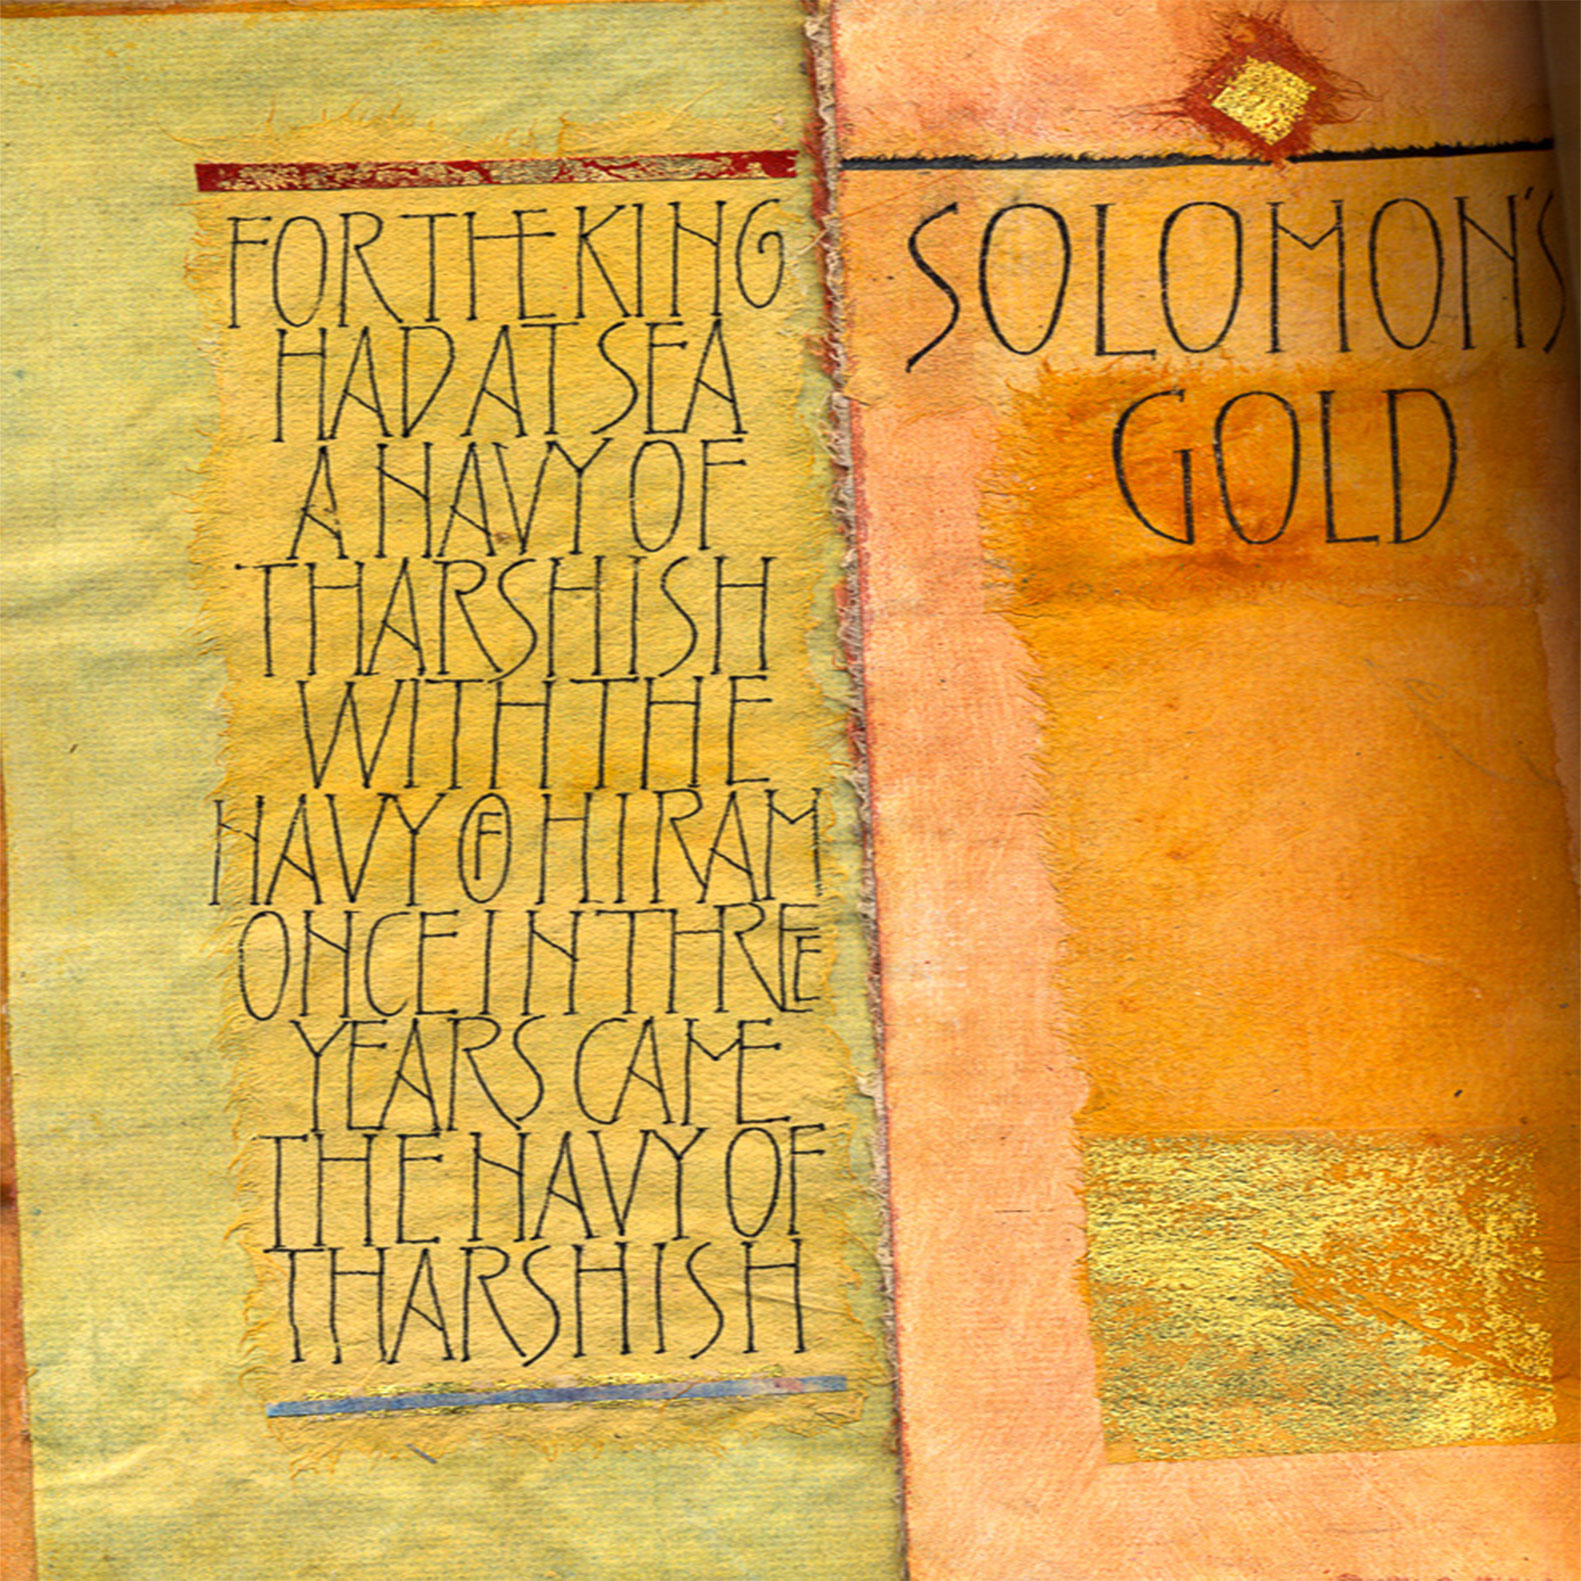 FOR THE KING
HAD AT SEA
A NAVY OF
THARSHISH
WITH THE
NAVY OF HIRAM
ONCE IN THREE
YEARS CAME
THE NAVY OF
THARSHISH
SOLOMON'S
GOLD